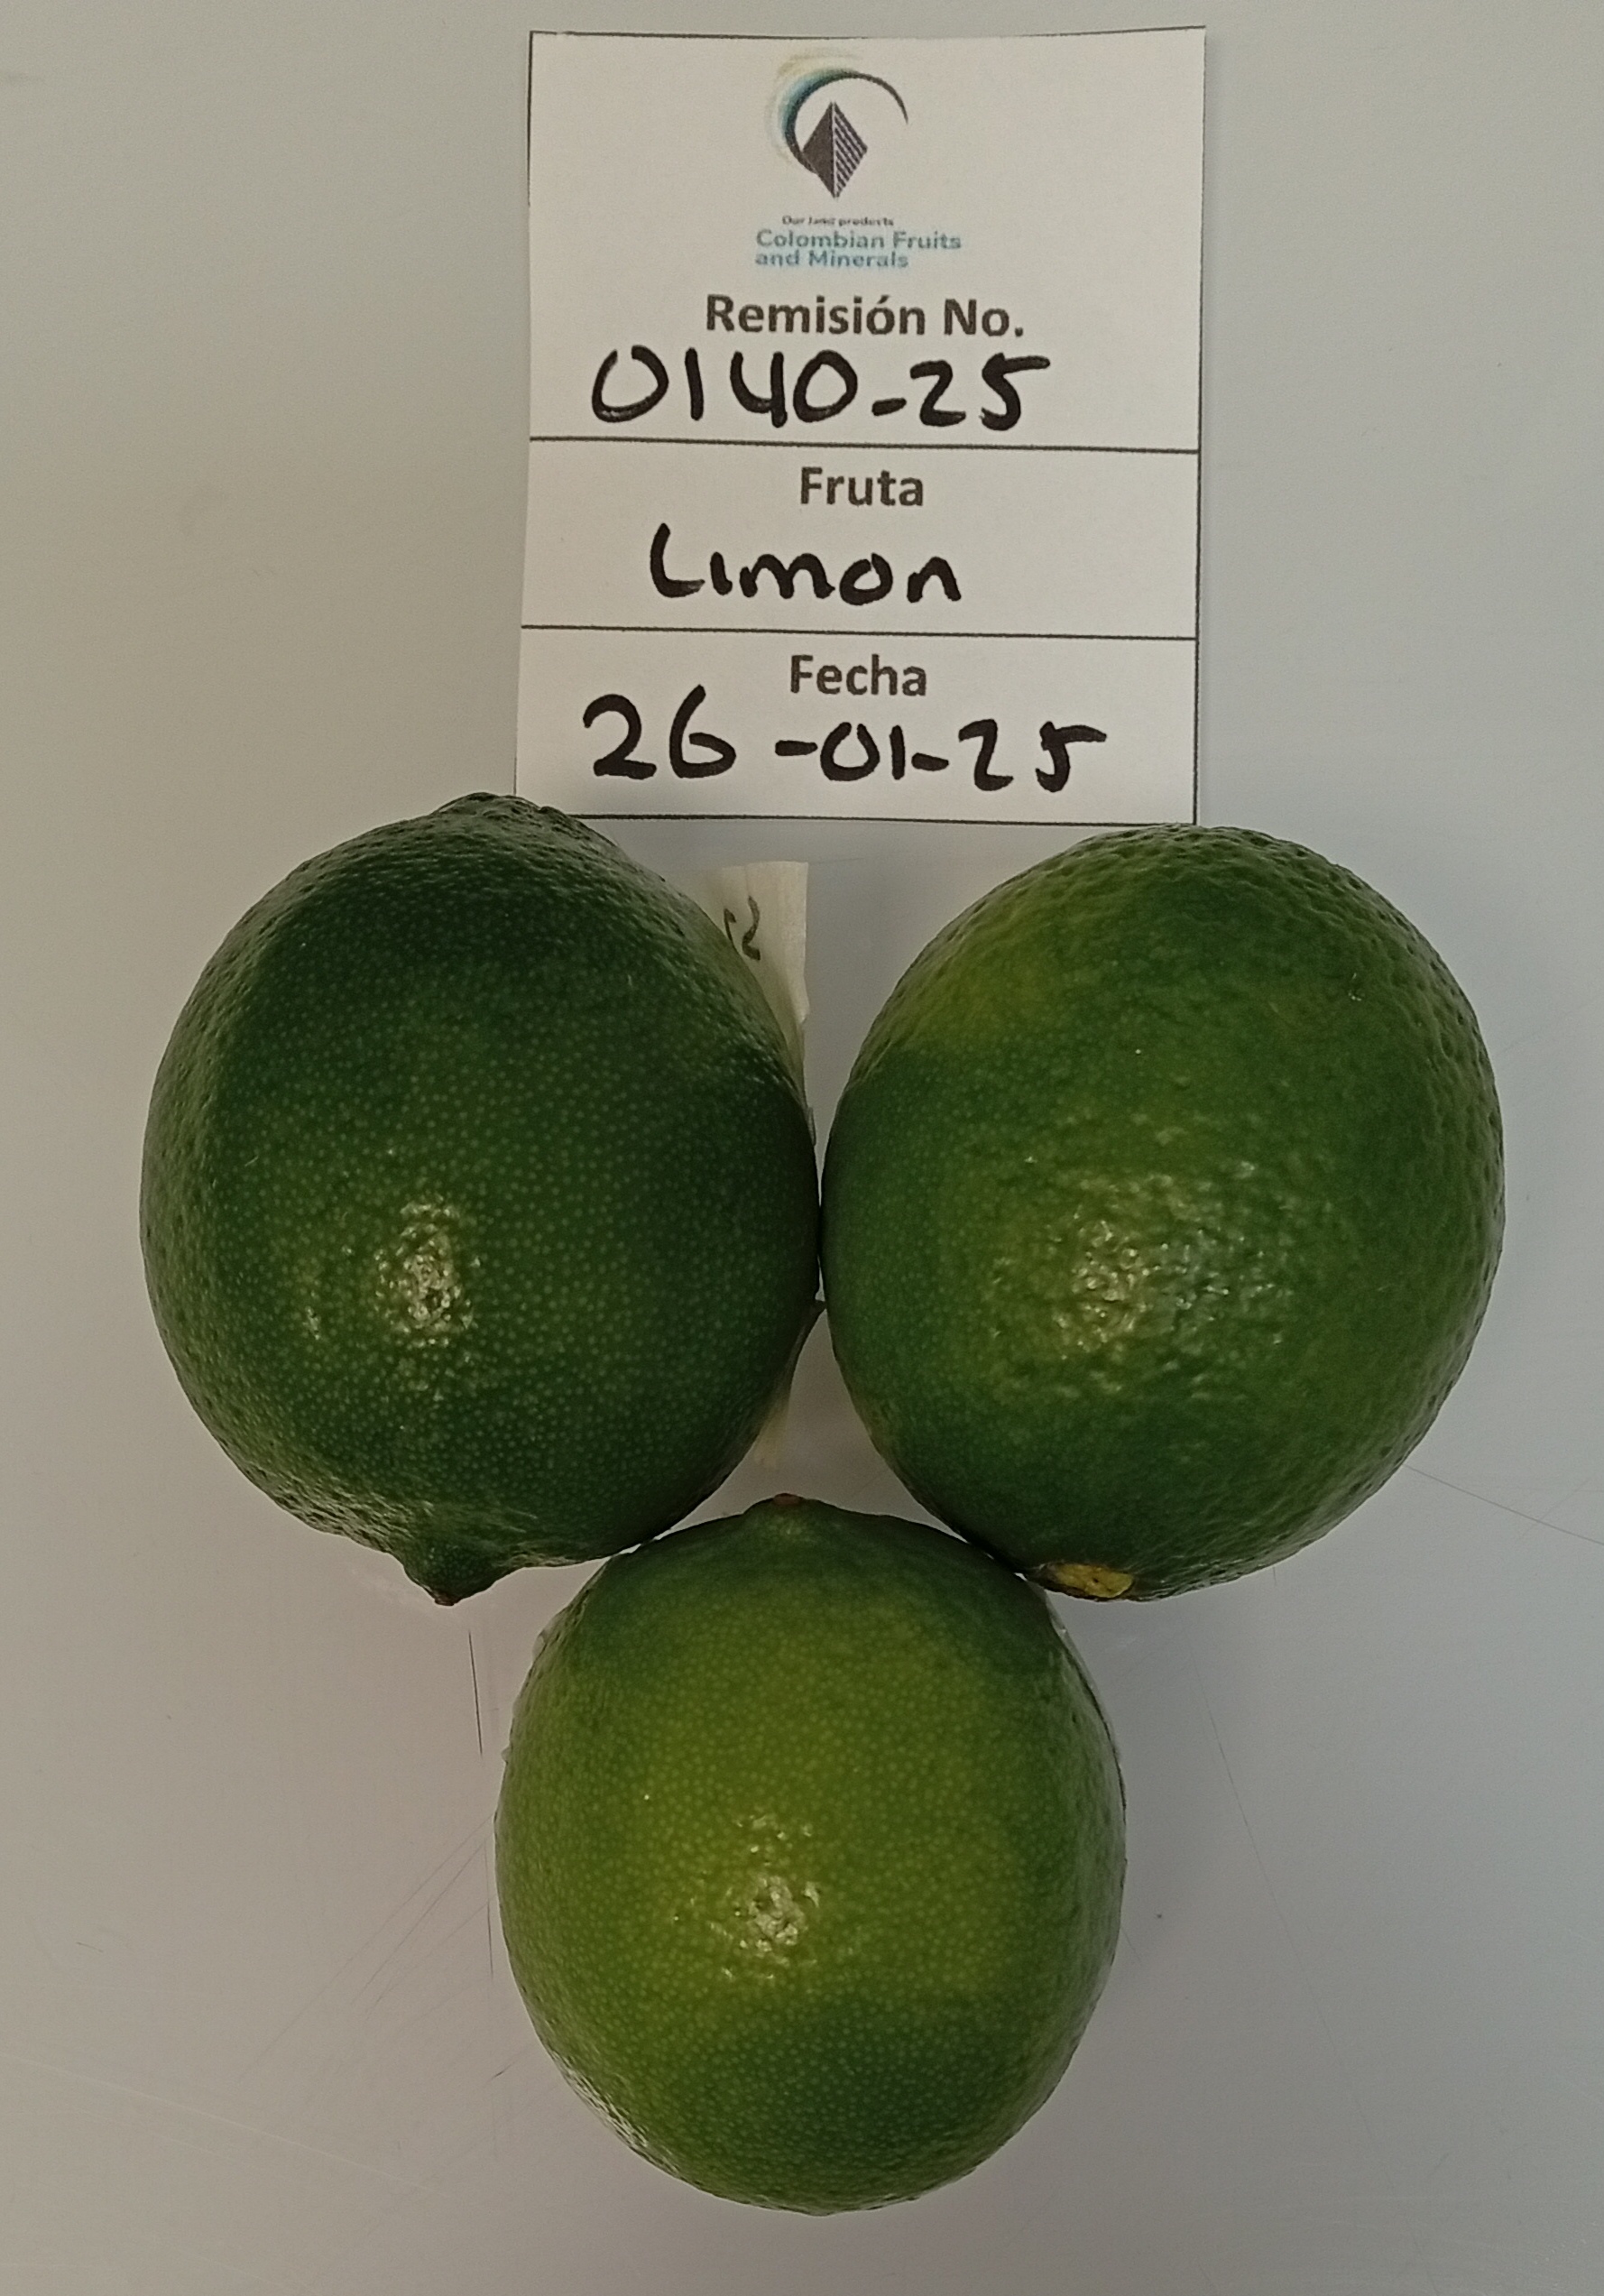 Our land products
Colombian Fruits
and Minerals
Remisión No.
0140-25
Fruta
Limon
Fecha
26-01-25